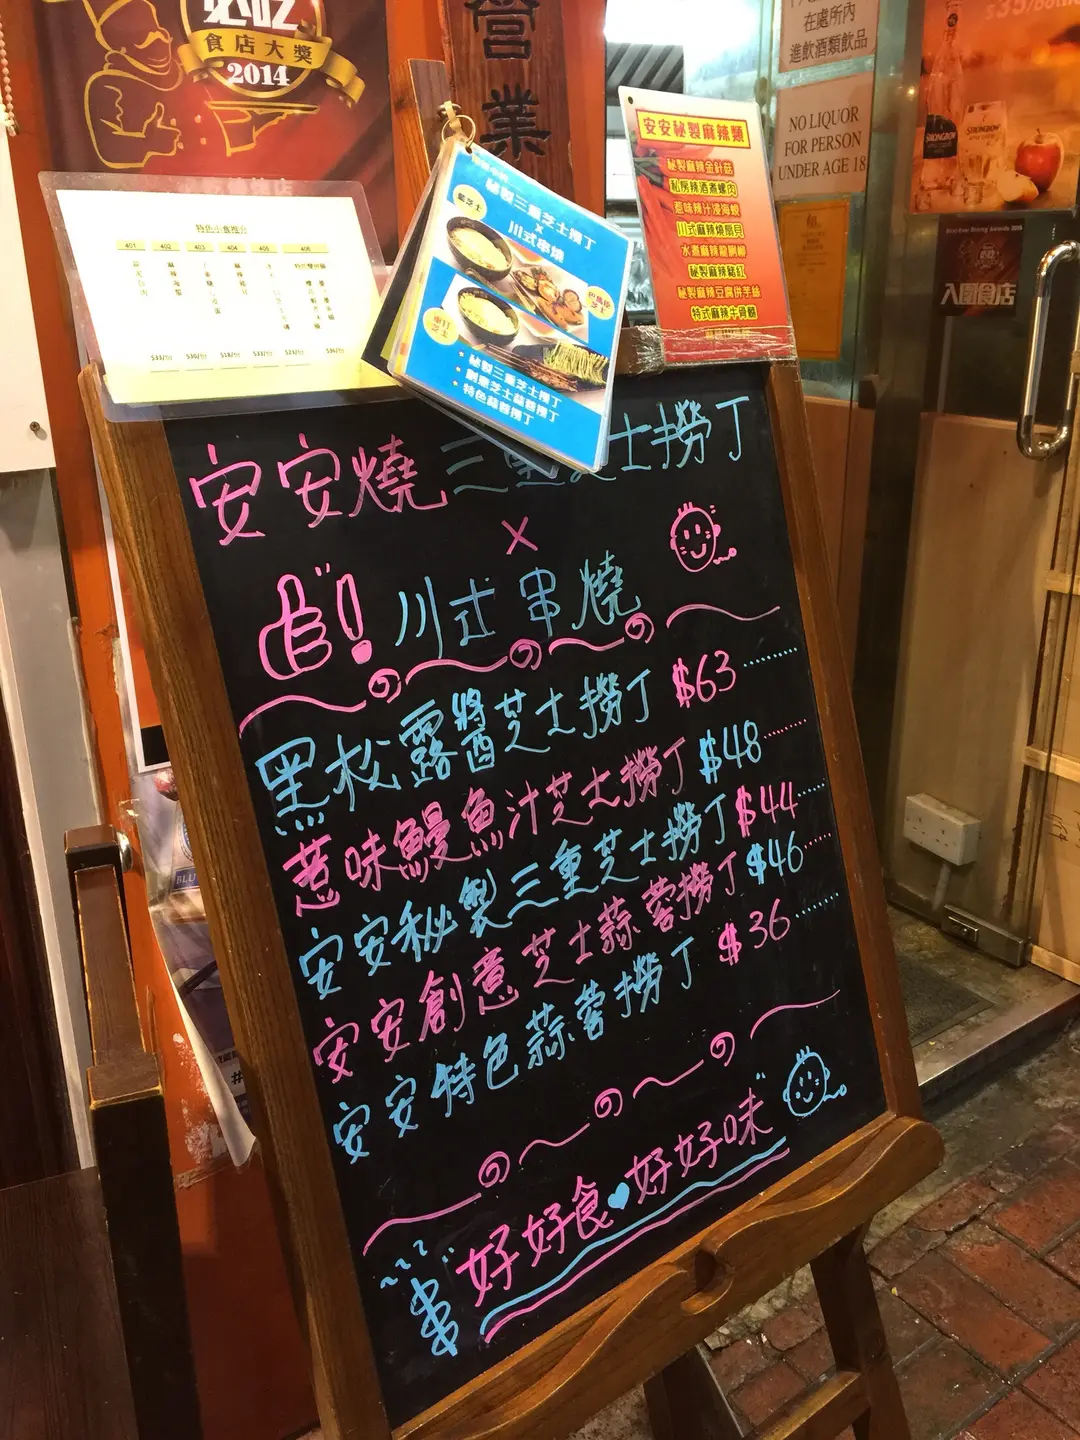 必吃
食店大獎
2014
營業
在處所內
進飲酒類飲品
NO LIQUOR
FOR PERSON
UNDER AGE 18
STRONGBOW
STRONGBOW
入圍食店
特色小食推介
401 402 403 404 405 406
$33/份 $30/份 $18/份 $33/份 $23/份 $36/份
秘製三重芝士撈丁
X
川式串燒
藍芝士
巴馬臣芝士
車打芝士
• 秘製三重芝士撈丁
• 創意芝士蒜蓉撈丁
• 特色蒜蓉撈丁
安安秘製麻辣類
秘製麻辣金針菇
私房辣酒煮螺肉
惹味辣汁浸海蜆
川式麻辣燒扇貝
水煮麻辣龍脷柳
秘製麻辣豬紅
秘製麻辣豆腐併芋絲
特式麻辣牛骨髓
安安燒三重芝士撈丁
X
川式串燒
黑松露醬芝士撈丁 $63
惹味鰻魚汁芝士撈丁 $48
安安秘製三重芝士撈丁 $44
安安創意芝士蒜蓉撈丁 $46
安安特色蒜蓉撈丁 $36
串 "好好食♥好好味"